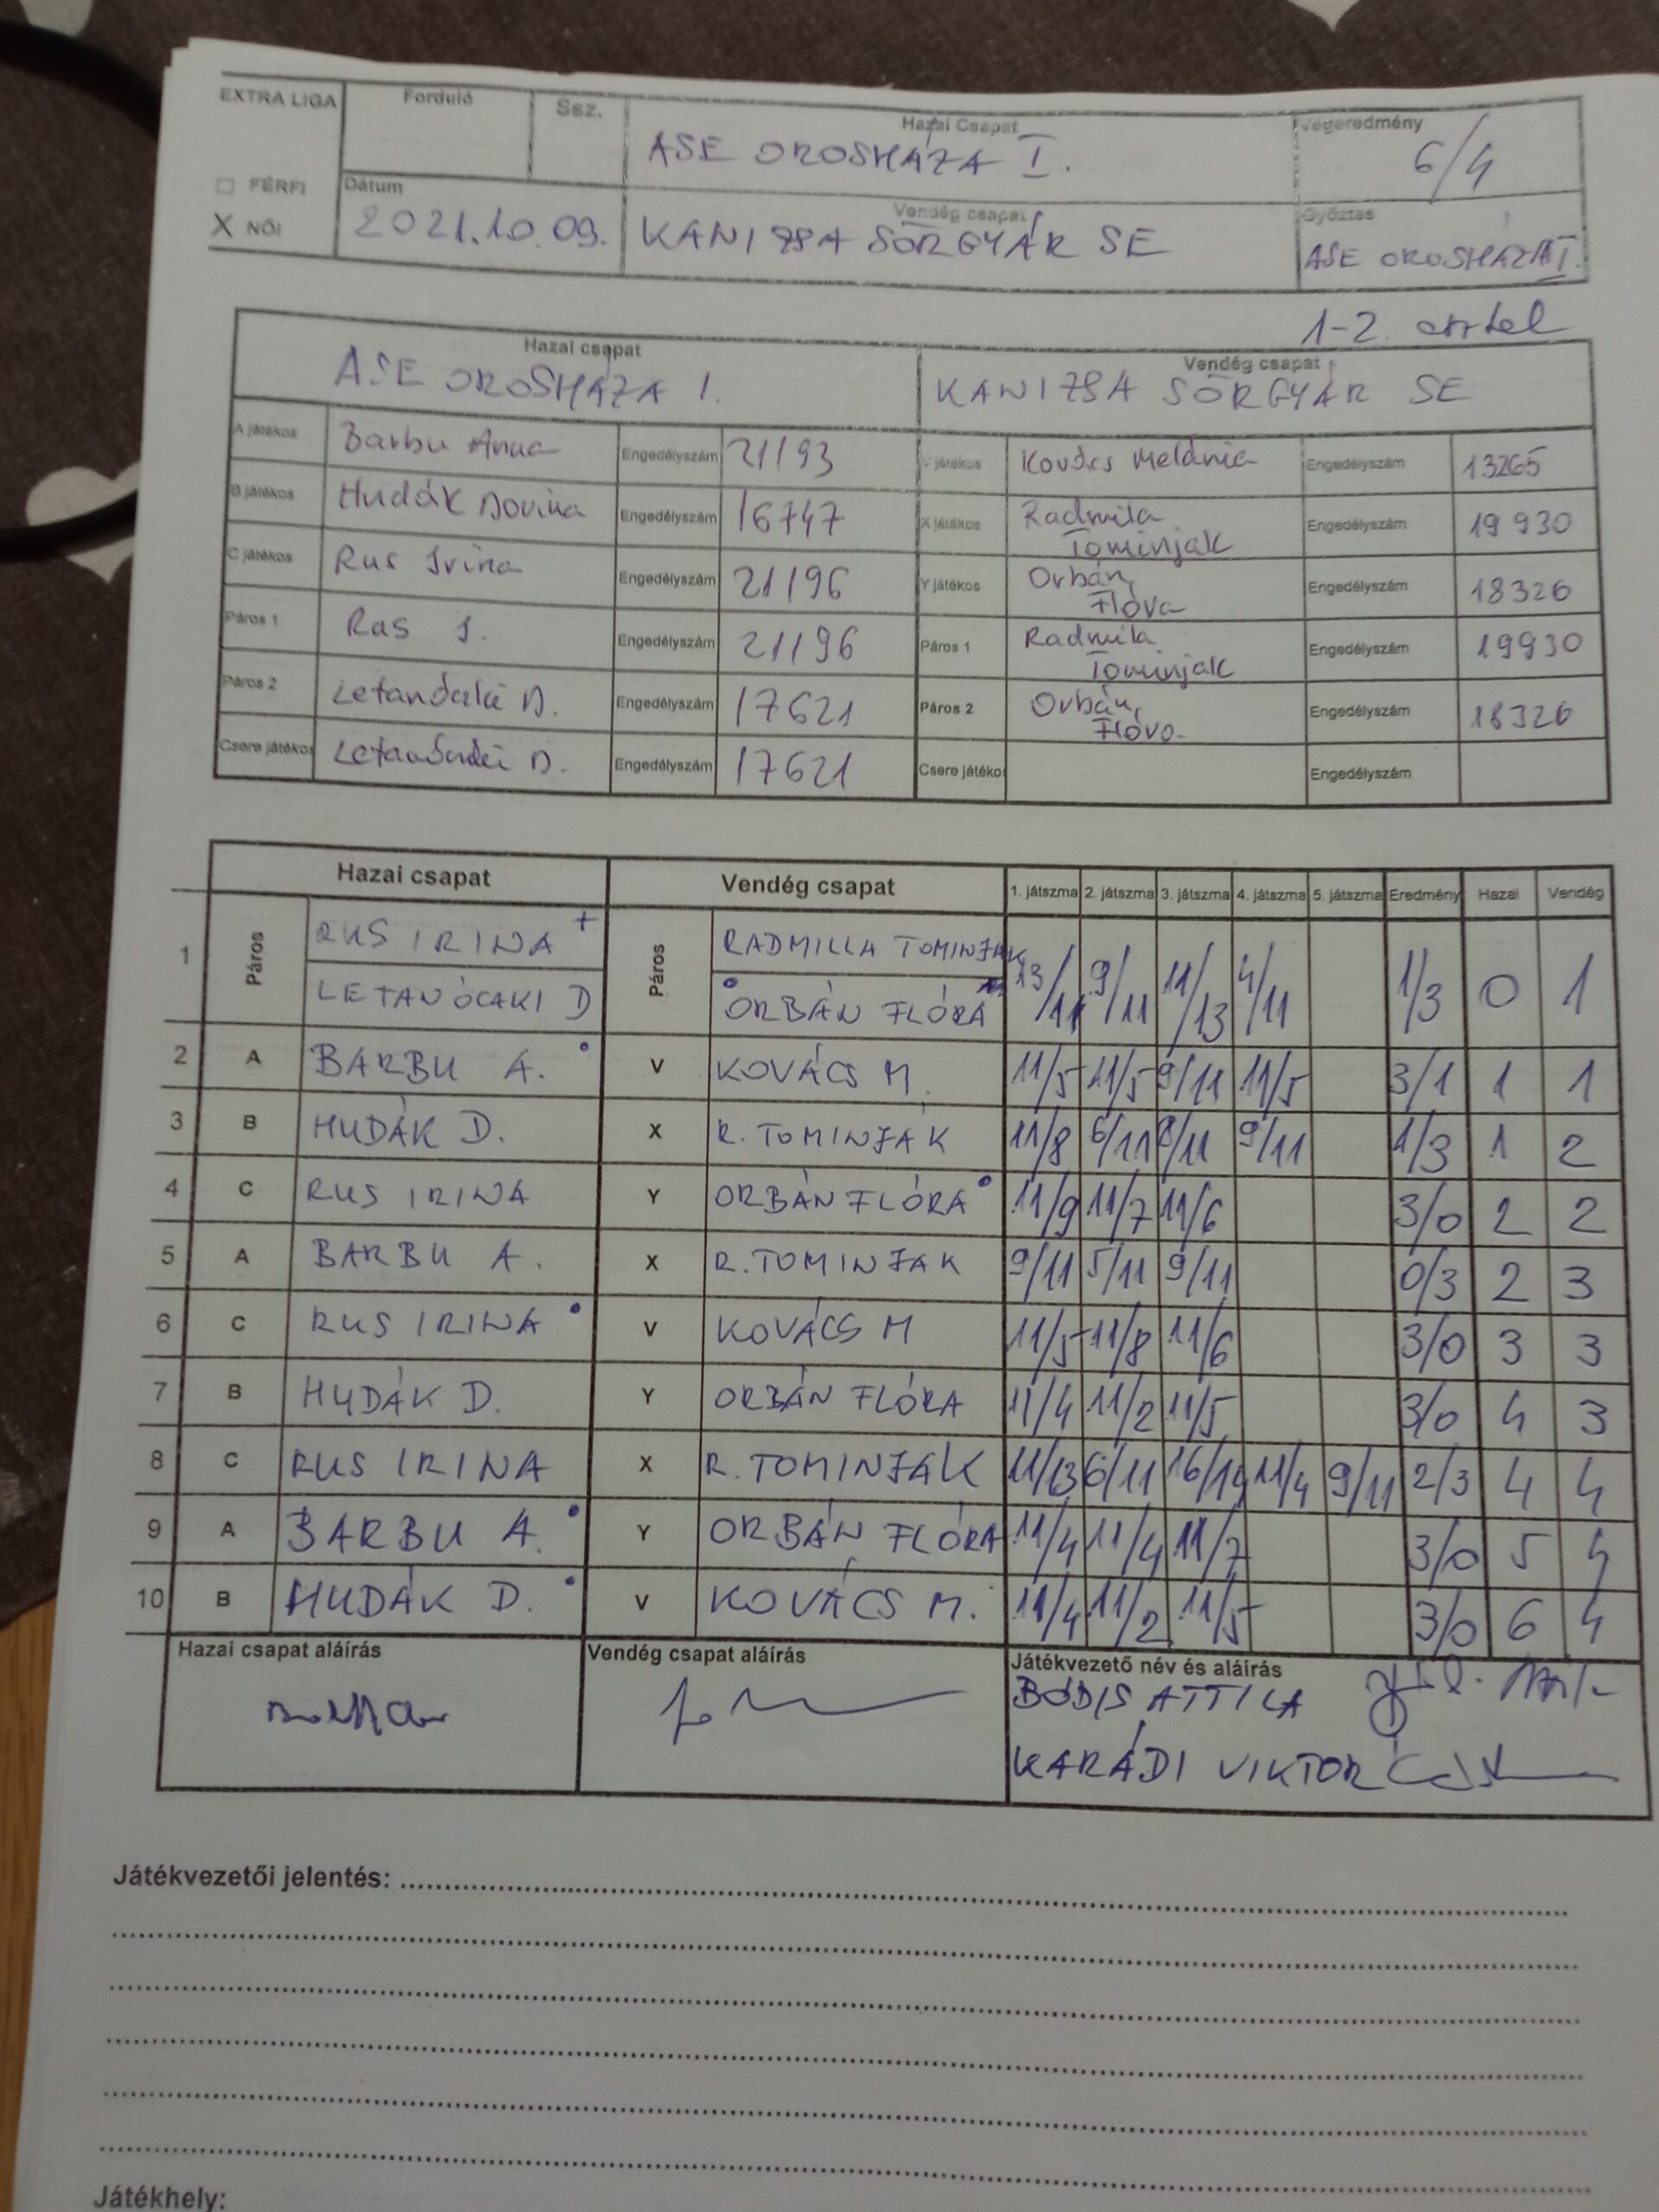 EXTRA LIGA Forduló Ssz. Hazai Csapat Végeredmény
ASE OROSHÁZA I. 6/4
□ FÉRFI Dátum Vendég csapat Győztes
X NŐI 2021.10.09. KANIZSA SÖRGYÁR SE ASE OROSHÁZA I.
1-2.
Hazai csapat Vendég csapat
ASE OROSHÁZA I. KANIZSA SÖRGYÁR SE
A játékos Barbu Anua Engedélyszám 21193 V játékos Kovács Melánia Engedélyszám 13265
B játékos Hudák Dorina Engedélyszám 16747 X játékos Radmila Tominjak Engedélyszám 19930
C játékos Rus Irina Engedélyszám 21196 Y játékos Orbán Flóra Engedélyszám 18326
Páros 1 Rus I. Engedélyszám 21196 Páros 1 Radmila Tominjak Engedélyszám 19930
Páros 2 D. Engedélyszám 17621 Páros 2 Orbán Flóra Engedélyszám 18326
Csere játékos D. Engedélyszám 17621 Csere játékos Engedélyszám
Hazai csapat Vendég csapat 1. játszma 2. játszma 3. játszma 4. játszma 5. játszma Eredmény Hazai Vendég
1 Páros RUS IRINA + Páros RADMILLA TOMINJAK 13/11 9/11 11/13 4/11 1/3 0 1
LETANÓCZKI D ORBÁN FLÓRA
2 A BARBU A. V KOVÁCS M. 11/5 11/5 9/11 11/5 3/1 1 1
3 B HUDÁK D. X R. TOMINJAK 11/8 6/11 8/11 9/11 1/3 1 2
4 C RUS IRINA Y ORBÁN FLÓRA 11/9 11/7 11/6 3/0 2 2
5 A BARBU A. X R. TOMINJAK 9/11 5/11 9/11 0/3 2 3
6 C RUS IRINA V KOVÁCS M 11/5 11/8 11/6 3/0 3 3
7 B HUDÁK D. Y ORBÁN FLÓRA 11/4 11/2 11/5 3/0 4 3
8 C RUS IRINA X R. TOMINJAK 11/13 6/11 16/14 11/4 9/11 2/3 4 4
9 A BARBU A. Y ORBÁN FLÓRA 11/4 11/4 11/7 3/0 5 4
10 B HUDÁK D. V KOVÁCS M. 11/4 11/2 11/5 3/0 6 4
Hazai csapat aláírás Vendég csapat aláírás Játékvezető név és aláírás
BÓDIS ATTILA
KARÁDI VIKTOR
Játékvezetői jelentés:
Játékhely: